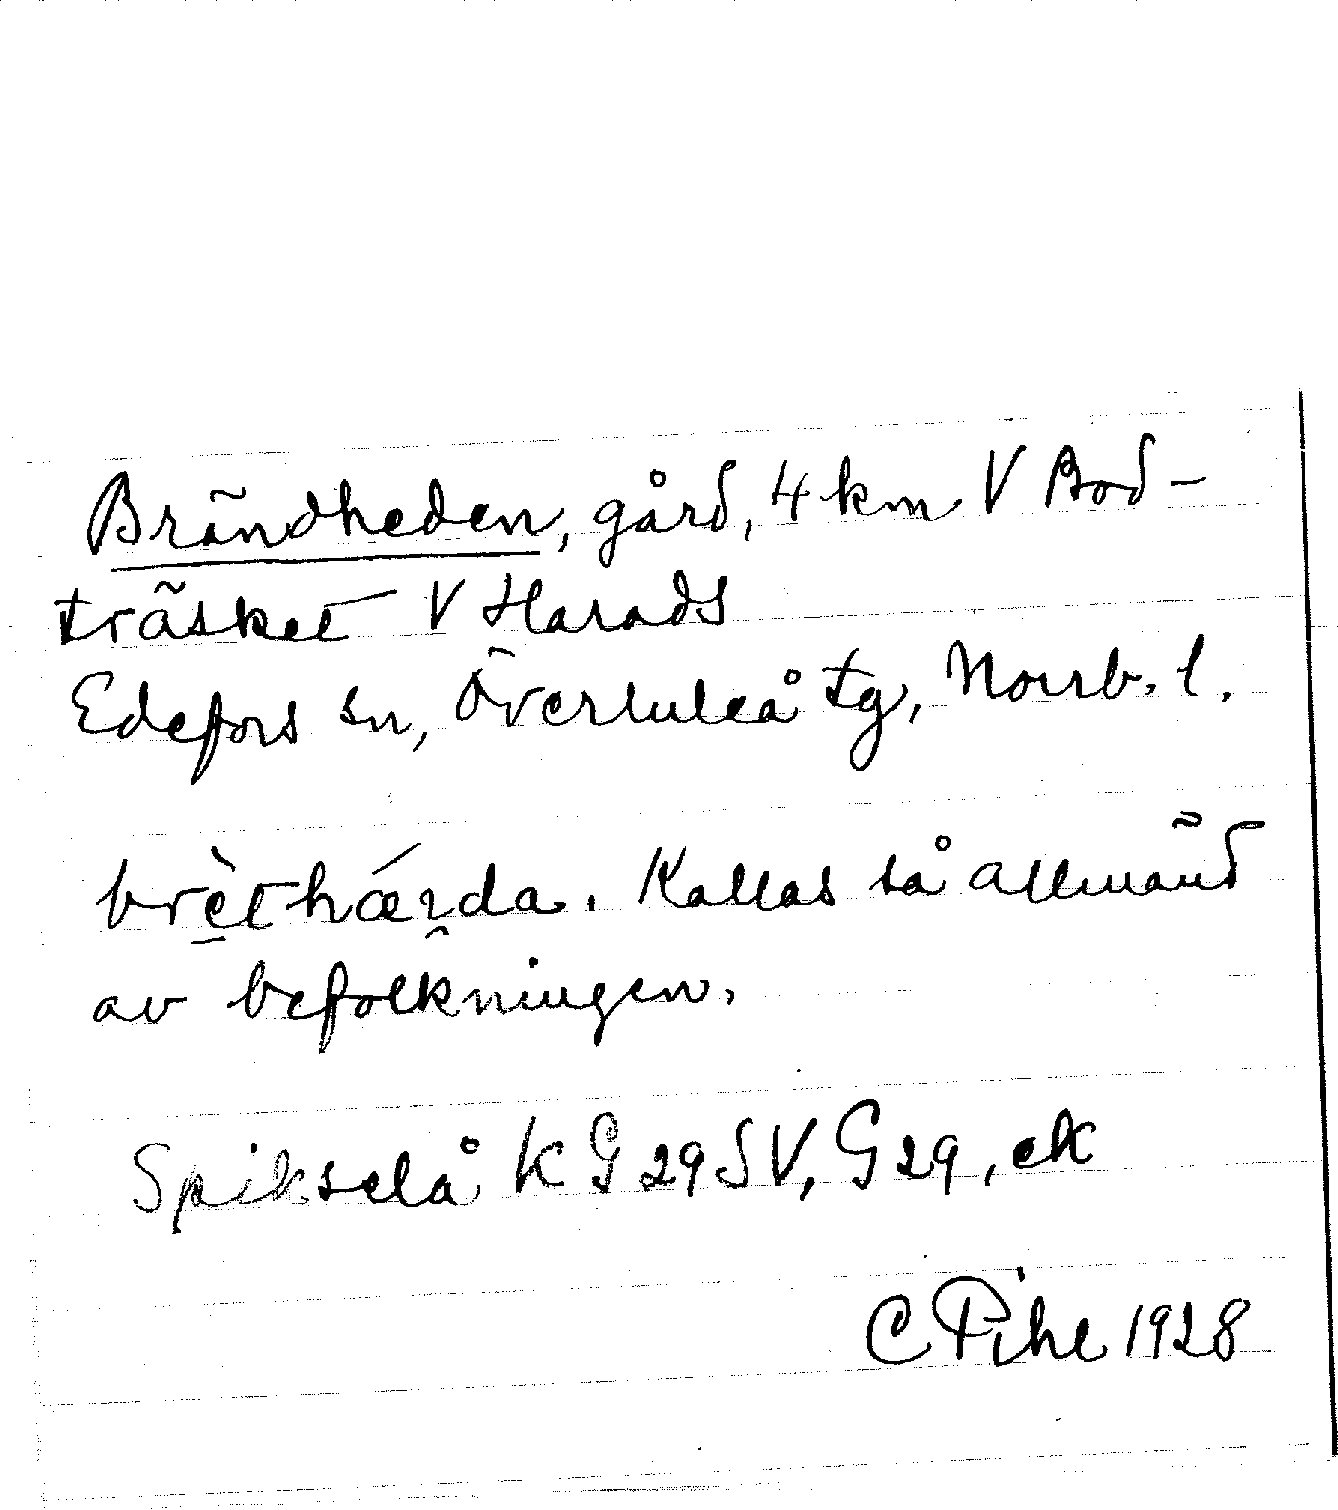 Brändheden, gård, 4 km V Bod-
träsket V Harads
Edefors sn, Överluleå tg, Norrb. l.
brèthǽrda. Kallas så allmänd
av befolkningen.
Spikselå K G 29 SV, G 29, ek
C Pihl 1928